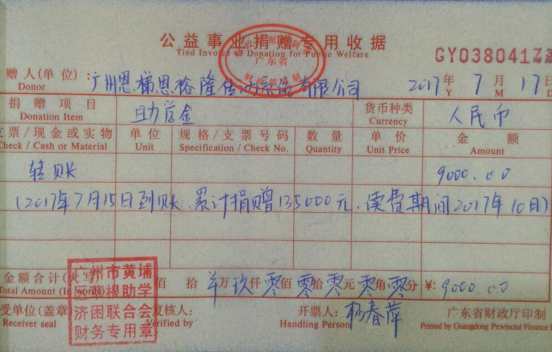 公益事业捐赠专用收据
Tied Invoice of Donation for Public Welfare
广东省
GY038041
赠人(单位): 广州恩 有限公司 2017年 7月 17日
Donor Y M D
捐赠项目 助学金 货币种类 人民币
Donation Item Currency
支票/现金或实物 单位 规格/支票号码 数量 单价 金额
Check / Cash or Material Unit Specification / Check No. Quantity Unit Price Amount
转账 9000.00
(2017年7月15日到账,累计捐赠135000元,续费期间2017年10日)
金额合计(大写) 佰 拾 万 玖仟 零佰 零拾 零元 零角 零分 ¥: 9000.00
Total Amount (In words)
广州市黄埔
助学
济困联合会
财务专用章
受单位(盖章) 复核人: 开票人: 杨春萍 广东省财政厅印制
Receiver seal Verified by Handling Person Printed by Guangdong Provincial Finance